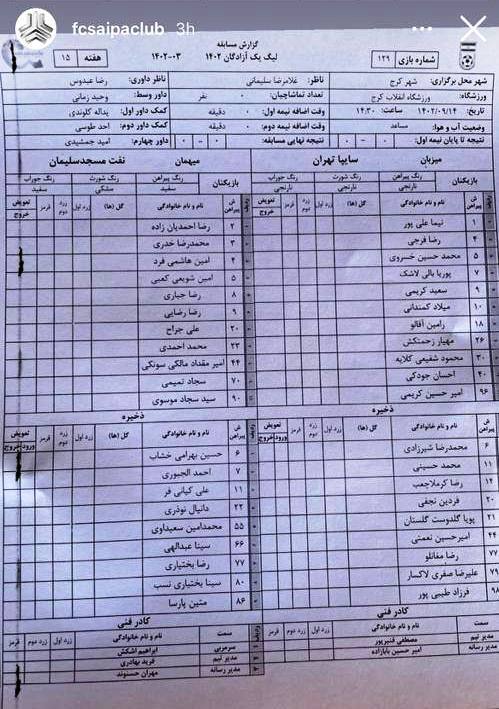 fcsaipaclub 3h
گزارش مسابقه
لیگ یک آزادگان ۱۴۰۲ ۱۴۰۲-۰۳
شماره بازی ۱۲۹
هفته ۱۵
شهر محل برگزاری: شهر کرج
ناظر: غلامرضا سلیمانی
ناظر داوری: رضا عبدوس
ورزشگاه: ورزشگاه انقلاب کرج
تعداد تماشاچیان: ۰ نفر
داور وسط: وحید زمانی
تاریخ: ۱۴۰۲/۰۹/۱۴ ساعت: ۱۴:۳۰
وقت اضافه نیمه اول: ۰ دقیقه
کمک داور اول: یداله گلوندی
وضعیت آب و هوا: مساعد
وقت اضافه نیمه دوم: ۰ دقیقه
کمک داور دوم: احد طوسی
نتیجه تا پایان نیمه اول: ۰ - ۰
نتیجه نهایی مسابقه: ۰ - ۰
داور چهارم: امید جمشیدی
میزبان سایپا تهران
میهمان نفت مسجدسلیمان
بازیکنان رنگ پیراهن رنگ شورت رنگ جوراب
نارنجی نارنجی نارنجی
بازیکنان رنگ پیراهن رنگ شورت رنگ جوراب
سفید مشکی سفید
ش پیراهن نام و نام خانوادگی گل (ها) زرد اول زرد دوم قرمز تعویض خروج
۱ نیما علی پور
۴ رضا فرجی
۵ محمد حسین خسروی
۷ پوریا بالی لاشک
۹ سعید کریمی
۱۰ میلاد کمندانی
۱۸ رامین آقالو
۲۶ مهیار زحمتکش
۳۰ محمود شفیعی کلایه
۴۰ احسان جودکی
۹۶ امیر حسین کریمی
ردیف ش پیراهن نام و نام خانوادگی گل (ها) زرد اول زرد دوم قرمز تعویض خروج
۲ رضا احمدیان زاده
۳ محمدرضا خدری
۴ امین هاشمی فرد
۵ امین شویعی کعبی
۸ رضا جباری
۹ رضا رضایی
۲۰ علی جراح
۲۳ محمد احمدی
۴۴ امیر مقداد مالکی سونکی
۷۰ سجاد تمیمی
۹۰ سید سجاد موسوی
ذخیره
ش پیراهن نام و نام خانوادگی گل (ها) زرد اول زرد دوم قرمز تعویض ورود خروج
۶ محمدرضا شیرزادی
۱۱ محمد حسینی
۱۴ رضا کرملاجعب
۲۰ فردین نجفی
۲۱ پویا گلدوست گلستان
۴۴ امیرحسین نعمتی
۷۷ رضا مغانلو
۷۹ علیرضا صفری لاکسار
۹۸ فرزاد طیبی پور
ذخیره
ردیف ش پیراهن نام و نام خانوادگی گل (ها) زرد اول زرد دوم قرمز تعویض ورود خروج
۶ حسین بهرامی خشاب
۷ احمد الجبوری
۱۱ علی کیانی فر
۲۲ دانیال نوذری
۵۵ محمدامین سعیداوی
۶۶ سینا عبدالهی
۷۷ رضا بختیاری
۸۰ سینا بختیاری نسب
۸۶ متین پارسا
کادر فنی
سمت نام و نام خانوادگی زرد اول زرد دوم قرمز
مدیر تیم مصطفی قنبرپور
مدیر رسانه امیر حسین بابازاده
کادر فنی
ردیف سمت نام و نام خانوادگی زرد اول زرد دوم قرمز
۱ سرمربی ابراهیم اشکش
۲ مدیر تیم فرید بهادری
۳ مدیر رسانه مهران حسنوند